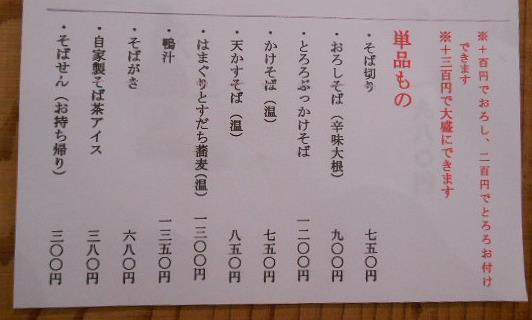 ※＋百円でおろし、二百円でとろろお付け
できます
※＋三百円で大盛にできます
単品もの
・そば切り 七五〇円
・おろしそば（辛味大根） 九〇〇円
・とろろぶっかけそば 一二〇〇円
・かけそば（温） 七五〇円
・天かすそば（温） 八五〇円
・はまぐりとすだち蕎麦（温） 一三〇〇円
鴨汁 一三五〇円
・そばがき 六八〇円
・自家製そば茶アイス 三八〇円
・そばせん（お持ち帰り） 三〇〇円